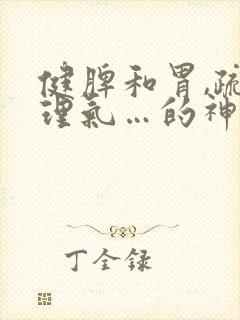 健脾和胃,疏
理氣…的神
丁全録